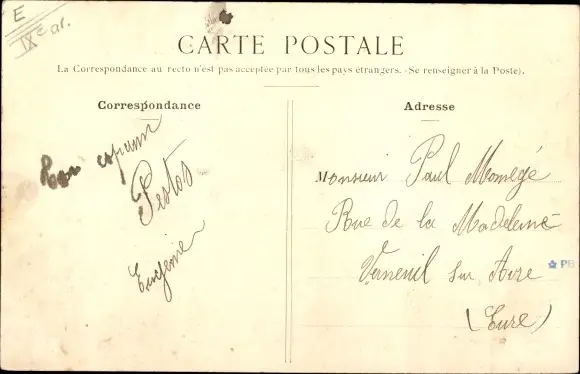 E
IXe ar.
CARTE POSTALE
La Correspondance au recto n'est pas acceptée par tous les pays étrangers. (Se renseigner à la Poste).
Correspondance
Adresse
Eugénie
Monsieur Paul
Rue de la Madeleine
Verneuil sur Avre
(Eure)
PB